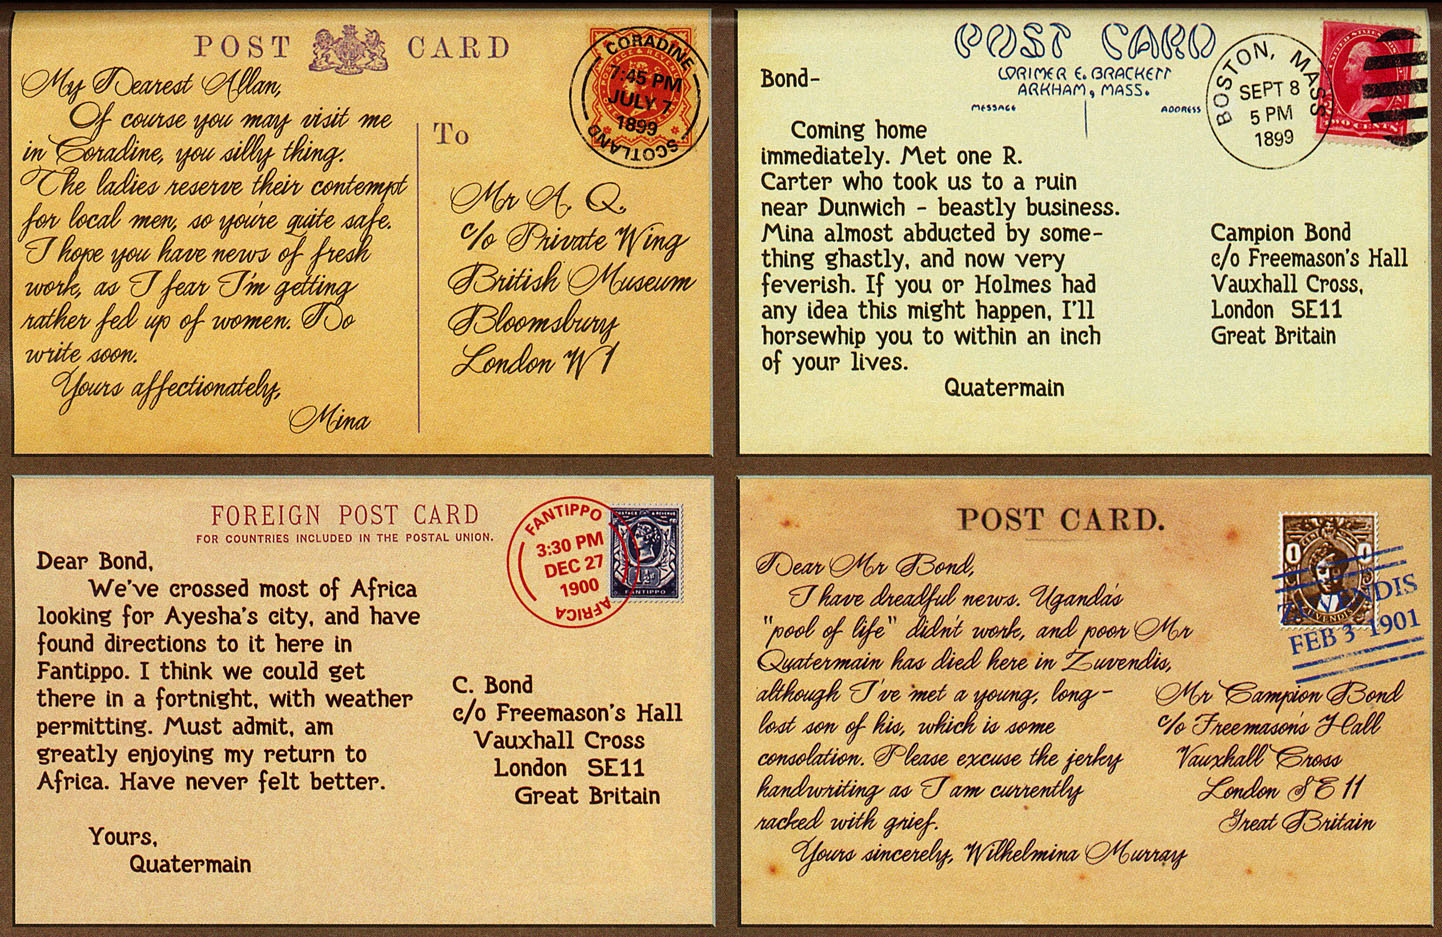 POST CARD
My Dearest Allan,
Of course you may visit me
in Coradine, you silly thing.
The ladies reserve their contempt
for local men, so you're quite safe.
I hope you have news of fresh
work, as I fear I'm getting
rather fed up of women. Do
write soon.
Yours affectionately,
Mina
To
Mr A. Q.
c/o Private Wing
British Museum
Bloomsbury
London W1
CORADINE
7:45 PM
JULY 7
1899
SCOTLAND
POST CARD
LORIMER E. BRACKETT
ARKHAM, MASS.
MESSAGE ADDRESS
Bond-
Coming home
immediately. Met one R.
Carter who took us to a ruin
near Dunwich - beastly business.
Mina almost abducted by some-
thing ghastly, and now very
feverish. If you or Holmes had
any idea this might happen, I'll
horsewhip you to within an inch
of your lives.
Quatermain
BOSTON, MASS
SEPT 8
5 PM
1899
TWO CENTS
Campion Bond
c/o Freemason's Hall
Vauxhall Cross,
London SE11
Great Britain
FOREIGN POST CARD
FOR COUNTRIES INCLUDED IN THE POSTAL UNION.
Dear Bond,
We've crossed most of Africa
looking for Ayesha's city, and have
found directions to it here in
Fantippo. I think we could get
there in a fortnight, with weather
permitting. Must admit, am
greatly enjoying my return to
Africa. Have never felt better.
Yours,
Quatermain
FANTIPPO
3:30 PM
DEC 27
1900
AFRICA
POSTAGE & REVENUE
1½
FANTIPPO
C. Bond
c/o Freemason's Hall
Vauxhall Cross
London SE11
Great Britain
POST CARD.
Dear Mr Bond,
I have dreadful news. Uganda's
"pool of life" didn't work, and poor Mr
Quatermain has died here in Zuvendis,
although I've met a young, long-
lost son of his, which is some
consolation. Please excuse the jerky
handwriting as I am currently
racked with grief.
Yours sincerely, Wilhelmina Murray
1 1
ZUVENDIS
FEB 3 1901
Mr Campion Bond
c/o Freemasons Hall
Vauxhall Cross
London SE11
Great Britain